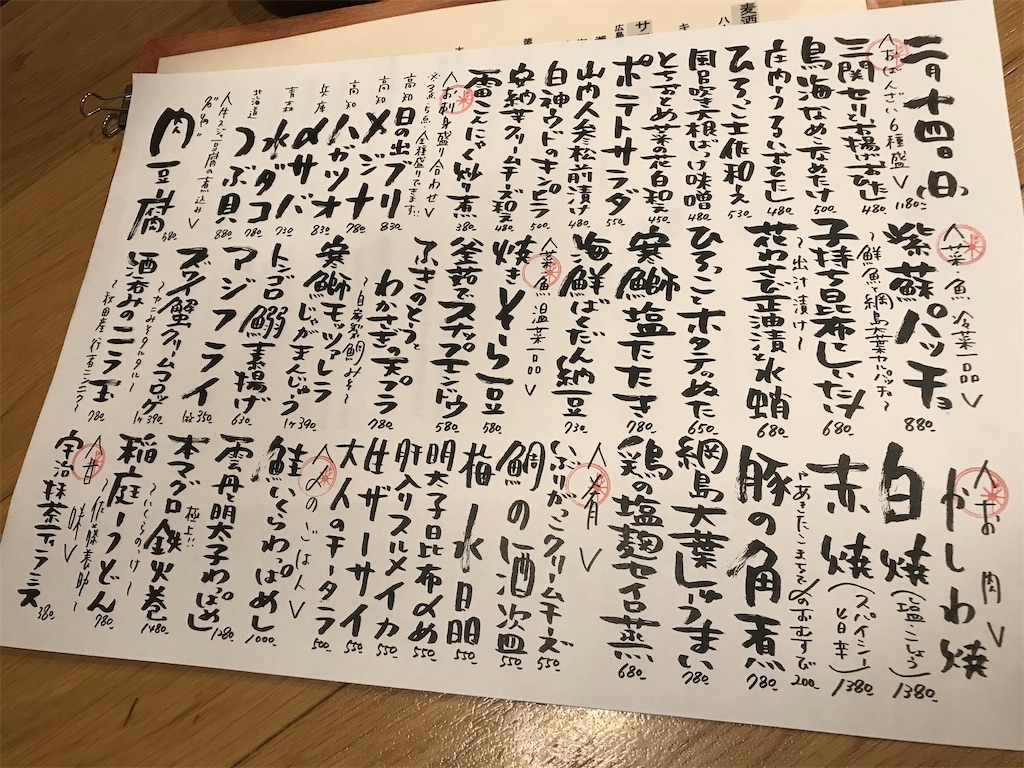 二月十四日(日)
<おばんざい6種盛> 1180-
三関セリとお揚げおひたし 480-
鳥海なめこなめたけ 500-
庄内うるいおひたし 480-
ひろっこ土佐和え 530-
国包吹き大根ばっけ味噌 480-
とちおとめ菜の花白和え 450-
ポテトサラダ 550-
山内人参松前漬け 480-
白神ウドのキンピラ 500-
安納芋クリームチーズ和え 480-
雷こんにゃく炒り煮 380-
<お刺身盛り合わせ>
全種盛りできます!!
高知 日の出ブリ 830-
高知 メジナ 780-
高知 ハガツオ 830-
兵庫 〆サバ 730-
青森 水ダコ 780-
北海道 つぶ貝 880-
<牛スジと豆腐の煮込み>
名物。
肉豆腐 580-
<菜 魚 冷菜一品>
紫蘇パッチョ 880-
~鮮魚と網島大葉カルパッチョ~
子持ち昆布としいたけ 680-
~出汁漬け~
花わさび正油漬と水蛸 680-
ひろっことホタテのぬた 650-
寒鰤塩たたき 780-
海鮮ばくだん納豆 730-
<菜 魚 温菜一品>
焼きそら豆 580-
釜茹でスナップエンドウ 580-
ふきのとうと
わかさぎの天プラ 780-
~自家製鯛みそ~
寒鰤モッツァレラ
じゃがまんじゅう 1ケ390-
トンゴロ鰯素揚げ 630-
アジフライ 1ケ350-
ズワイ蟹クリームコロッケ 1ケ390-
~カニみそタルタル~
酒呑みのニラ玉 780-
~秋田産行者ニンニク~
<お 肉>
かしわ焼
白焼(塩こしょう) 1380-
赤焼(スパイシー旨辛) 1380-
やあきたこまちで〆のおむすび 200-
豚の角煮 780-
網島大葉しゅうまい 780-
鶏の塩麹セイロ蒸 680-
<肴>
いぶりがっこクリームチーズ 550-
鯛の酒次四 550-
梅水晶 550-
明太子昆布〆め 550-
肝入りスルメイカ 550-
甘ザーサイ 550-
大人のチータラ 500-
<〆のごはん>
鮭いくらわっぱめし 1000-
雲丹と明太子わっぱめし 1280-
極上!!
本マグロ鉄火巻 1480-
~いくらのっけ~
稲庭うどん 780-
~佐藤養助~
<甘 味>
宇治抹茶ティラミス 380-
麦酒
サ
キ
広島